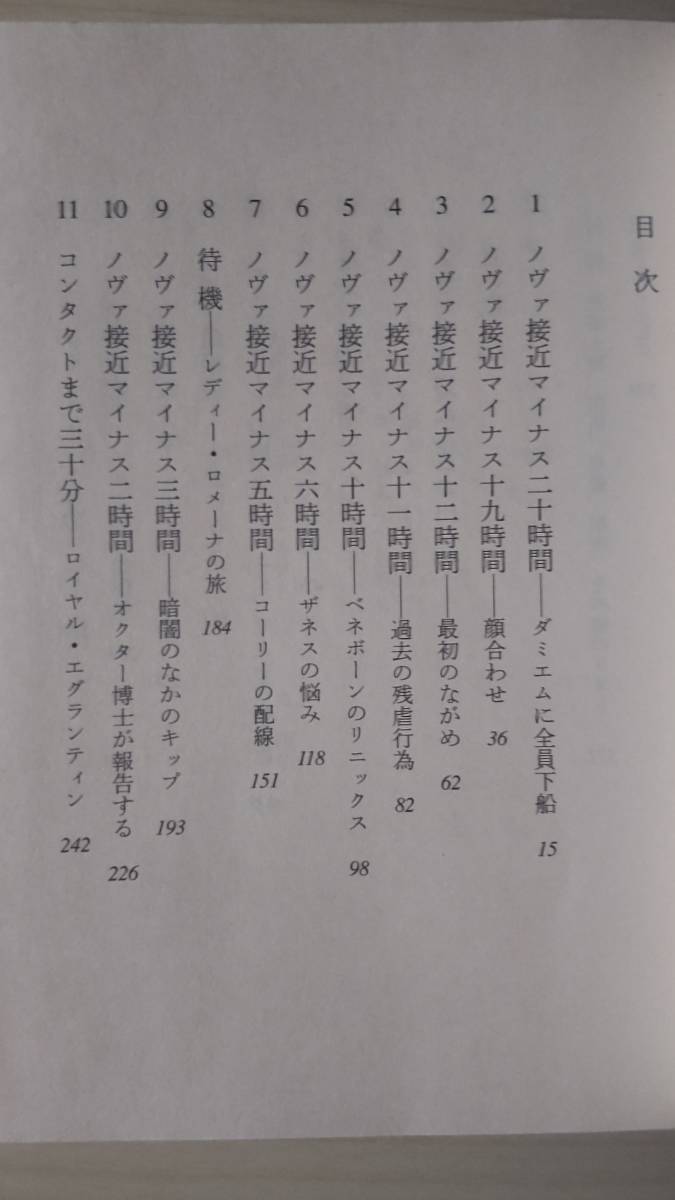 目次
1 ノヴァ接近マイナス二十時間──ダミエムに全員下船 15
2 ノヴァ接近マイナス十九時間──顔合わせ 36
3 ノヴァ接近マイナス十二時間──最初のながめ 62
4 ノヴァ接近マイナス十一時間──過去の残虐行為 82
5 ノヴァ接近マイナス十時間──ベネボーンのリニックス 98
6 ノヴァ接近マイナス六時間──ザネスの悩み 118
7 ノヴァ接近マイナス五時間──コーリーの配線 151
8 待機──レディー・ロメーナの旅 184
9 ノヴァ接近マイナス三時間──暗闇のなかのキップ 193
10 ノヴァ接近マイナス二時間──オクター博士が報告する 226
11 コンタクトまで三十分──ロイヤル・エグランティン 242